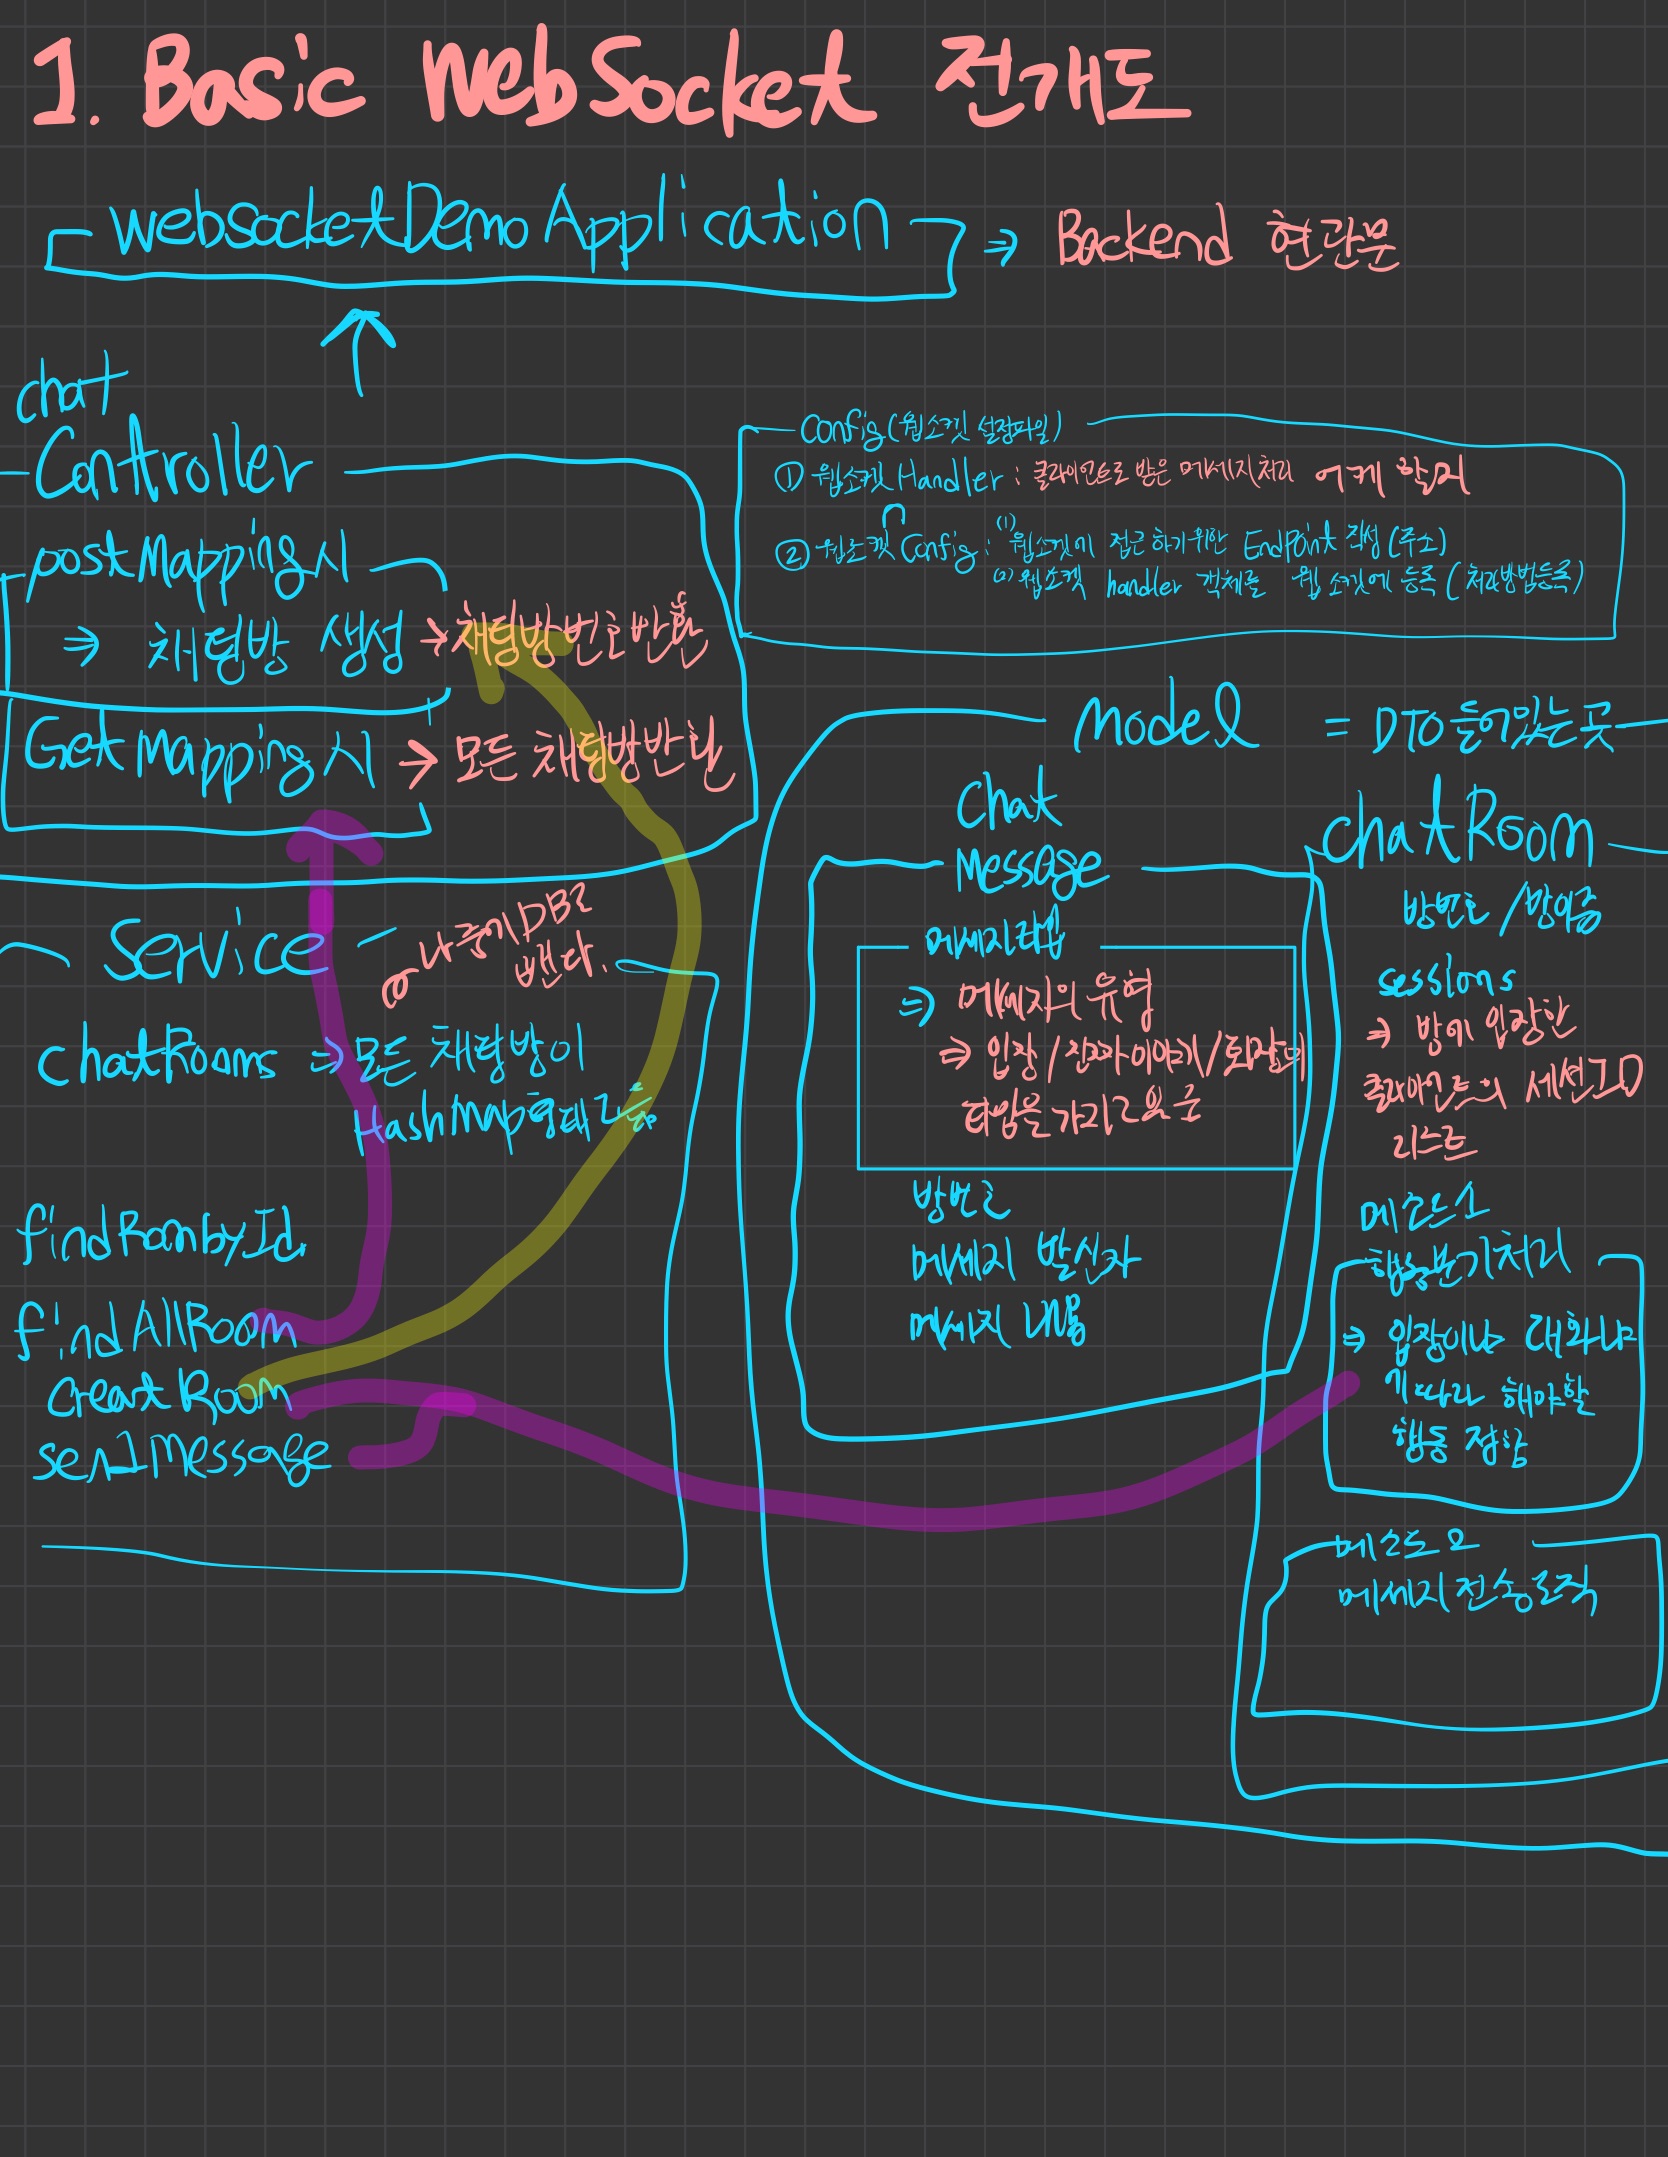 1. Basic WebSocket 전개도
WebsocketDemoApplication ⇒ Backend 현관문
chat
Controller
postMapping시
⇒ 채팅방 생성 → 채팅방번호반환
GetMapping시 → 모든 채팅방반환
Config (웹소켓 설정파일)
① 웹소켓 Handler : 클라이언트로 받은 메세지처리 어케 할지
② 웹소켓 Config : (1) 웹소켓에 접근하기위한 EndPoint 작성 (주소)
(2) 웹소켓 handler 객체를 웹소켓에 등록 (처리방법등록)
Service
나중에 DB로
뺀다.
chatRooms ⇒ 모든 채팅방이
HashMap형태로
findRoombyId
findAllRoom
CreatRoom
sendMessage
Model = DTO 들어있는 곳
Chat
Message
메세지타입
⇒ 메세지의 유형
⇒ 입장 / 진짜이야기 /
타입을 가지고있
방번호
메세지 발신자
메세지 내용
ChatRoom
방번호 / 방이름
sessions
⇒ 방에 입장한
클라이언트의 세션ID
리스트
메소드
행동분기처리
⇒ 입장이냐 대화냐
따라 해야할
행동 정함
메소드
메세지전송로직